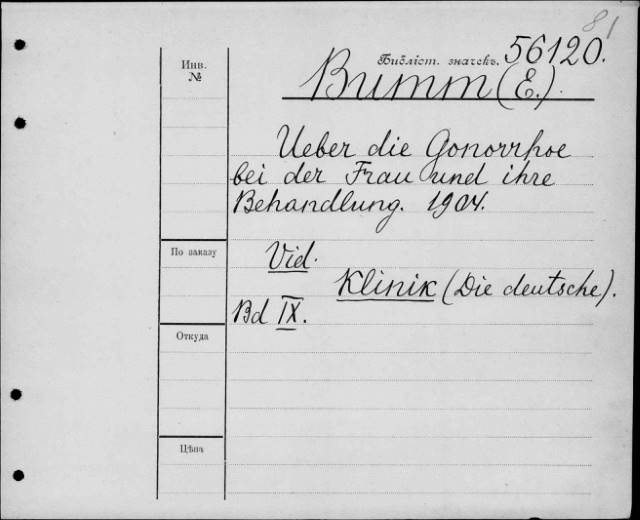 81
Инв.
№
Библіот. значекъ. 56120.
Bumm (E.).
Ueber die Gonorrhoe
bei der Frau und ihre
Behandlung. 1904.
По заказу
Vid.
Klinik (Die deutsche).
Bd IX.
Откуда
Цѣна